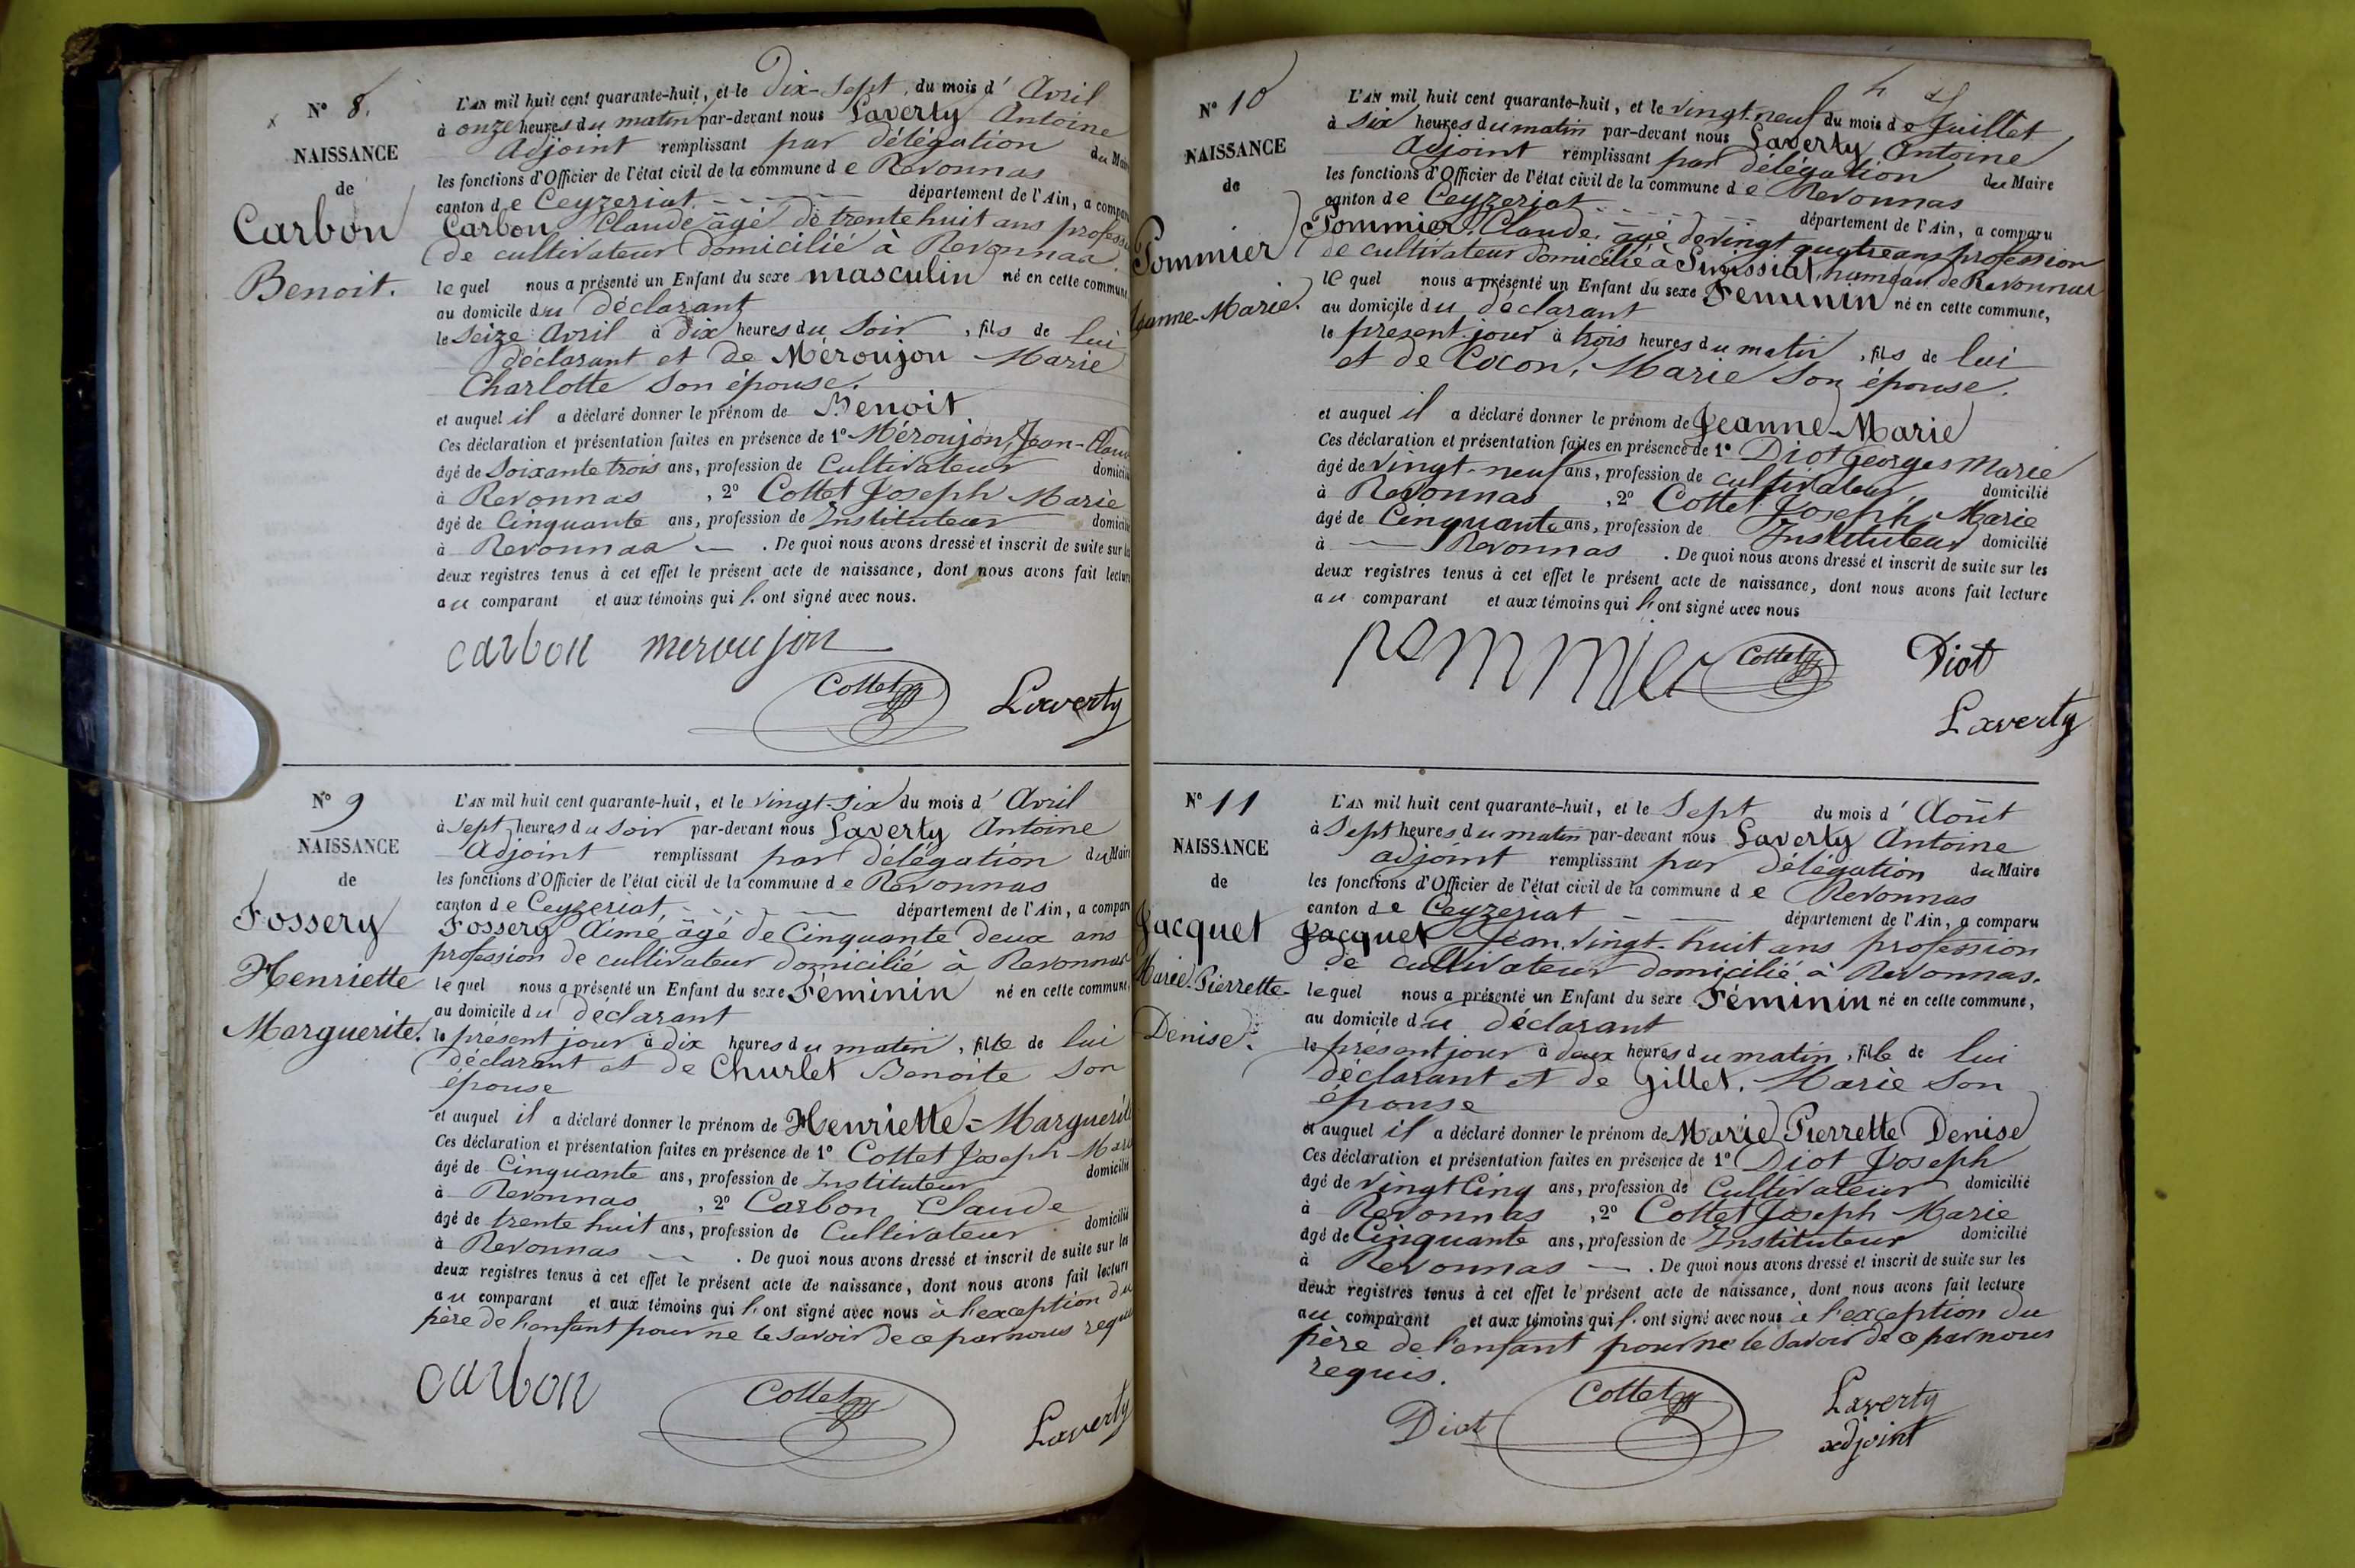 N° 8.
NAISSANCE
de
Carbon
Benoit.
L'AN mil huit cent quarante-huit, et le Dix-Sept du mois d' Avril
à onze heures du matin par-devant nous Laverty Antoine
Adjoint remplissant par délégation du Maire
les fonctions d'Officier de l'état civil de la commune de Revonnas
canton de Ceyzeriat département de l'Ain, a comparu
Carbon, Claude âgé de trente huit ans profession
de cultivateur domicilié à Revonnas.
lequel nous a présenté un Enfant du sexe masculin né en cette commune,
au domicile du déclarant
le Seize Avril à Dix heures du Soir, fils de lui
déclarant et de Méroujon Marie
Charlotte Son épouse.
et auquel il a déclaré donner le prénom de Benoit.
Ces déclaration et présentation faites en présence de 1° Méroujon, Jean-Claude
âgé de Soixante trois ans, profession de Cultivateur domicilié
à Revonnas, 2° Cottet Joseph Marie
âgé de Cinquante ans, profession de Instituteur domicilié
à Revonnas — . De quoi nous avons dressé et inscrit de suite sur les
deux registres tenus à cet effet le présent acte de naissance, dont nous avons fait lecture
au comparant et aux témoins qui l'ont signé avec nous.
carbon meroujon
Cottet
Laverty
N° 9
NAISSANCE
de
Fossery
Henriette
Marguerite.
L'AN mil huit cent quarante-huit, et le vingt-six du mois d' Avril
à sept heures du soir par-devant nous Laverty Antoine
Adjoint remplissant par délégation du Maire
les fonctions d'Officier de l'état civil de la commune de Revonnas
canton de Ceyzeriat département de l'Ain, a comparu
Fossery Aimé, âgé de Cinquante deux ans
profession de cultivateur domicilié à Revonnas
lequel nous a présenté un Enfant du sexe Féminin né en cette commune,
au domicile du déclarant
le présent jour à dix heures du matin, fille de lui
déclarant et de Churlet Benoite Son
épouse
et auquel il a déclaré donner le prénom de Henriette-Marguerite
Ces déclaration et présentation faites en présence de 1° Cottet Joseph Marie
âgé de Cinquante ans, profession de Instituteur domicilié
à Revonnas, 2° Carbon Claude
âgé de trente huit ans, profession de Cultivateur domicilié
à Revonnas — . De quoi nous avons dressé et inscrit de suite sur les
deux registres tenus à cet effet le présent acte de naissance, dont nous avons fait lecture
au comparant et aux témoins qui l'ont signé avec nous à l'exception du
père de l'enfant pour ne le savoir de ce par nous requis
carbon
Cottet
Laverty
N° 10
NAISSANCE
de
Pommier
Jeanne-Marie.
L'AN mil huit cent quarante-huit, et le vingt-neuf du mois de Juillet
à Six heures du matin par-devant nous Laverty Antoine
Adjoint remplissant par délégation du Maire
les fonctions d'Officier de l'état civil de la commune de Revonnas
canton de Ceyzeriat département de l'Ain, a comparu
Pommier, Claude, âgé de vingt quatre ans profession
de cultivateur domicilié à hameau de Revonnas
lequel nous a présenté un Enfant du sexe Féminin né en cette commune,
au domicile du déclarant
le présent jour à trois heures du matin, fils de lui
et de Cocon, Marie Son épouse.
et auquel il a déclaré donner le prénom de Jeanne-Marie
Ces déclaration et présentation faites en présence de 1° Diot Georges Marie
âgé de vingt-neuf ans, profession de cultivateur domicilié
à Revonnas, 2° Cottet Joseph Marie
âgé de Cinquante ans, profession de Instituteur domicilié
à — Revonnas . De quoi nous avons dressé et inscrit de suite sur les
deux registres tenus à cet effet le présent acte de naissance, dont nous avons fait lecture
au comparant et aux témoins qui l'ont signé avec nous
pommier Cottet Diot
Laverty
N° 11
NAISSANCE
de
Jacquet
Marie-Pierrette
Denise.
L'AN mil huit cent quarante-huit, et le Sept du mois d' Août
à Sept heures du matin par-devant nous Laverty Antoine
adjoint remplissant par délégation du Maire
les fonctions d'Officier de l'état civil de la commune de Revonnas
canton de Ceyzeriat département de l'Ain, a comparu
Jacquet Jean, vingt-huit ans profession
de cultivateur domicilié à Revonnas.
lequel nous a présenté un Enfant du sexe Féminin né en cette commune,
au domicile du déclarant
le présent jour à deux heures du matin, fille de lui
déclarant et de Gillet, Marie Son
épouse
et auquel il a déclaré donner le prénom de Marie Pierrette Denise
Ces déclaration et présentation faites en présence de 1° Diot Joseph
âgé de vingt Cinq ans, profession de Cultivateur domicilié
à Revonnas, 2° Cottet Joseph Marie
âgé de Cinquante ans, profession de Instituteur domicilié
à Revonnas — . De quoi nous avons dressé et inscrit de suite sur les
deux registres tenus à cet effet le présent acte de naissance, dont nous avons fait lecture
au comparant et aux témoins qui l'ont signé avec nous à l'exception du
père de l'enfant pour ne le savoir de ce par nous
requis.
Diot Cottet Laverty
adjoint